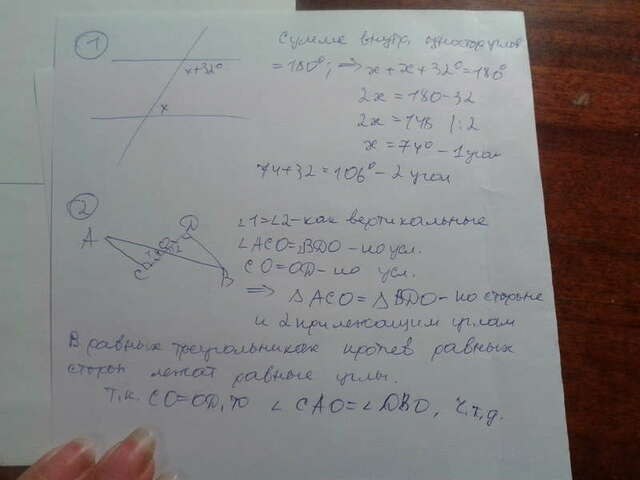 1
x+32°
x
Сумма внутр. односторон углов
= 180°; ⇒ x + x + 32° = 180°
2x = 180-32
2x = 148 /:2
x = 74° - 1 угол
74+32 = 106° - 2 угол
2
A
D
O
C
B
∠1=∠2 - как вертикальные
∠ACO=∠BDO - по усл.
CO=OD - по усл.
⇒ △ACO = △BDO - по стороне
и 2 прилежащим углам
В равных треугольниках против равных
сторон лежат равные углы.
Т.к. CO=OD, то ∠CAO=∠DBO, ч.т.д.